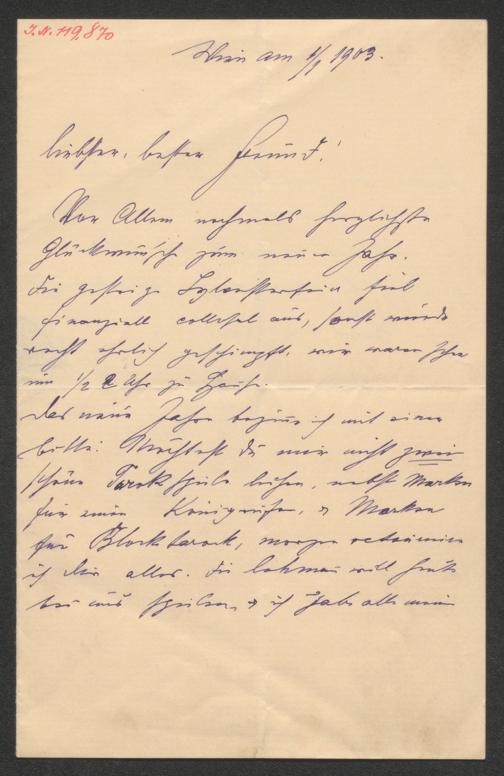 I.N. 119.870
Wien am 1/1 1903.
liebster, bester Freund!
Vor Allem nochmals herzlichste
Glückwünsche zum neuen Jahr.
Die gestrige Sylvesterfeier fiel
finanziell colossal aus, sonst wurde
recht ehrlich geschimpft, wir waren schon
um 1/2 2 Uhr zu Hause.
Das neue Jahr beginne ich mit einer
bitte: Möchtest Du mir nicht zwei
schöne Tarokspiele leihen, nebst Marken
für einen Königrufen, & Marken
für Blocktarock, morgen retournire
ich Dir alles. Die will heute
bei uns spielen, & ich habe alle meine